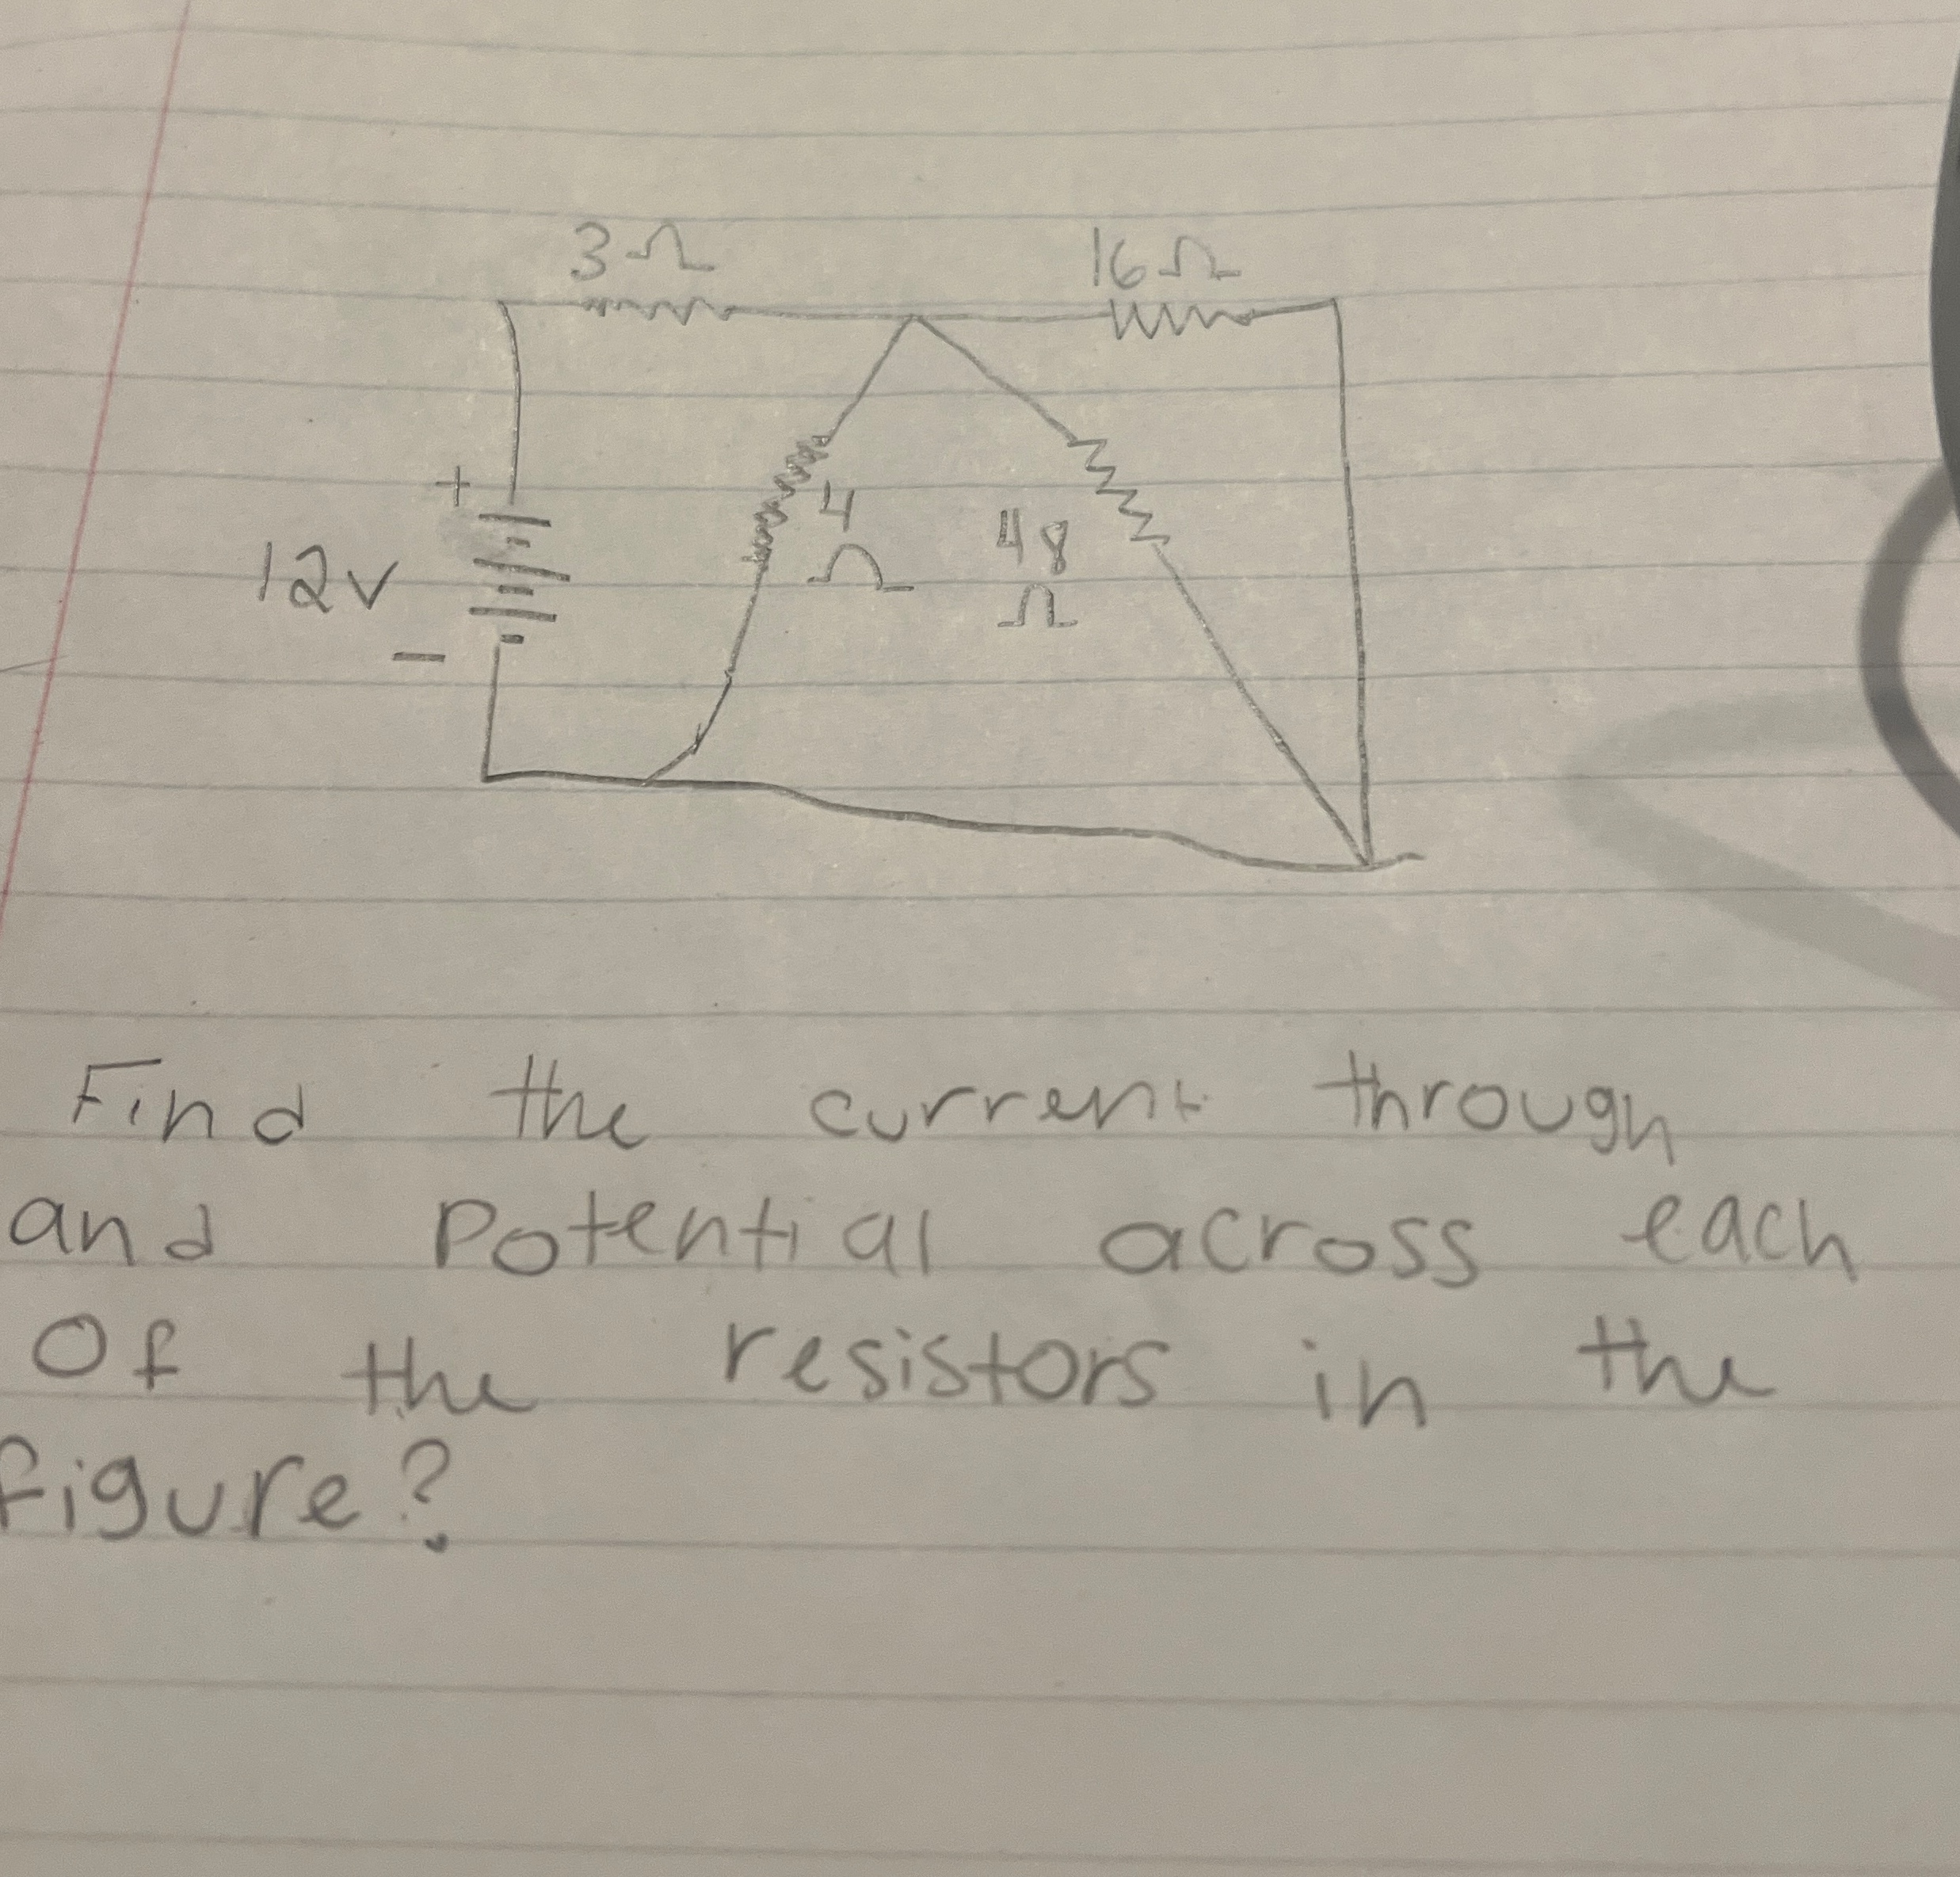 3Ω 16Ω
+
4
Ω
48
Ω
12v
−
Find the current through
and Potential across each
Of the resistors in the
figure?